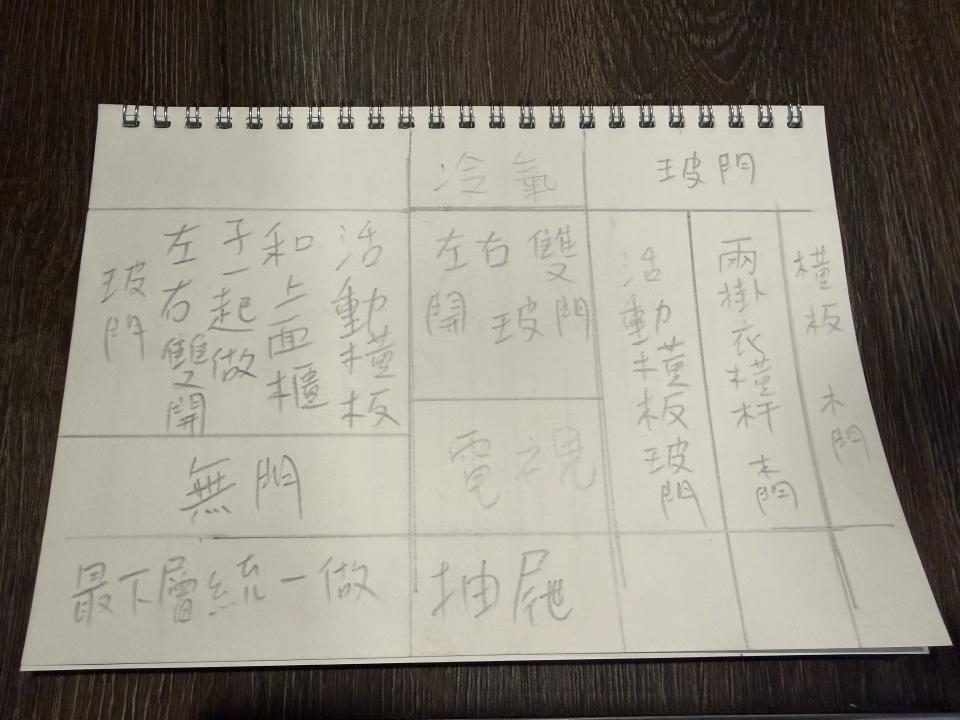 冷氣
玻門
活動橫板
和上面櫃
子一起做
左右雙開
玻門
左右雙
開 玻門
活動橫板玻門
兩掛衣橫杆 木門
橫板 木門
無門
電視
最下層統一做
抽屜